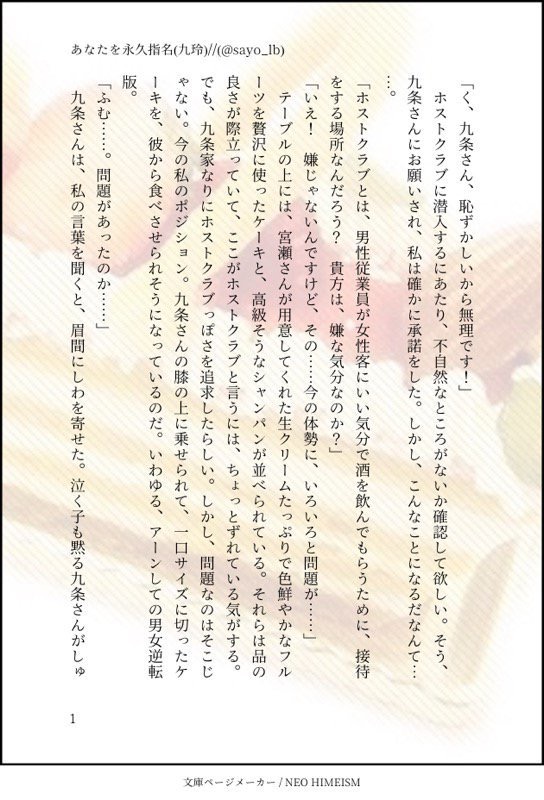 あなたを永久指名(九玲)//(@sayo_lb)
「く、九条さん、恥ずかしいから無理です！」
　ホストクラブに潜入するにあたり、不自然なところがないか確認して欲しい。そう、
九条さんにお願いされ、私は確かに承諾をした。しかし、こんなことになるだなんて…
…。
「ホストクラブとは、男性従業員が女性客にいい気分で酒を飲んでもらうために、接待
をする場所なんだろう？　貴方は、嫌な気分なのか？」
「いえ！　嫌じゃないんですけど、その……今の体勢に、いろいろと問題が……」
　テーブルの上には、宮瀬さんが用意してくれた生クリームたっぷりで色鮮やかなフル
ーツを贅沢に使ったケーキと、高級そうなシャンパンが並べられている。それらは品の
良さが際立っていて、ここがホストクラブと言うには、ちょっとずれている気がする。
でも、九条家なりにホストクラブっぽさを追求したらしい。しかし、問題なのはそこじ
ゃない。今の私のポジション。九条さんの膝の上に乗せられて、一口サイズに切ったケ
ーキを、彼から食べさせられそうになっているのだ。いわゆる、アーンしての男女逆転
版。
「ふむ……。問題があったのか……」
　九条さんは、私の言葉を聞くと、眉間にしわを寄せた。泣く子も黙る九条さんがしゅ
1
文庫ページメーカー / NEO HIMEISM